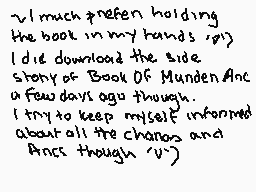 ~I much prefer holding
the book in my hands 'p')
I did download the side
story of Book Of Munden Anc
a few days ago though.
I try to keep myself informed
about all the chanas and
Ancs though 'v')